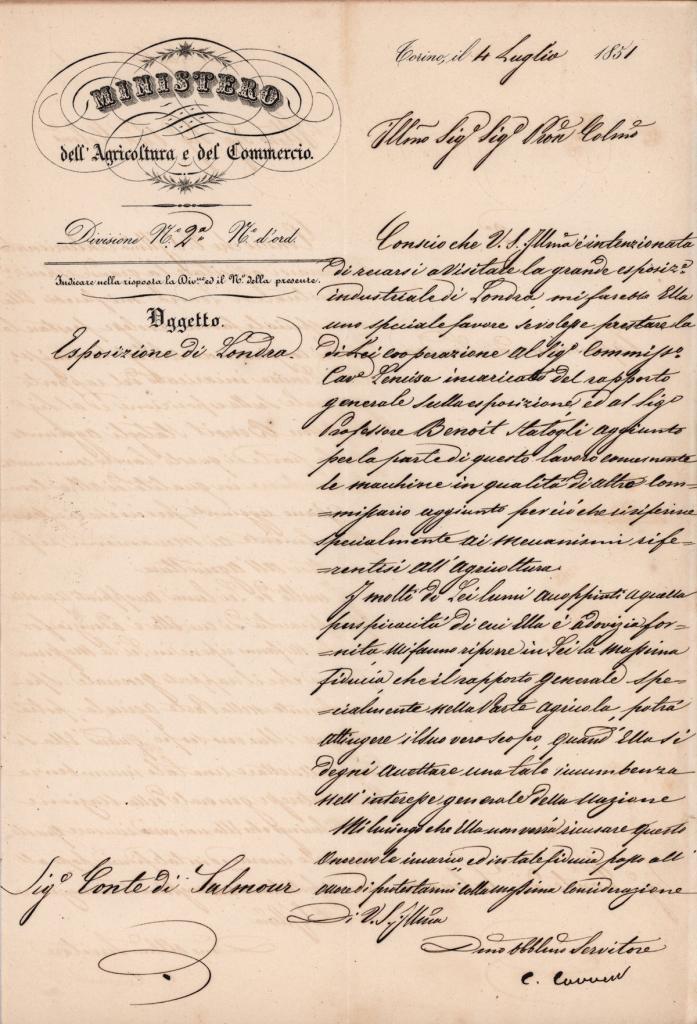 MINISTERO
dell'Agricoltura e del Commercio.
Divisione N.º 2ª N.º d'ord.
Indicare nella risposta la Div.ne ed il N.º della presente.
Oggetto.
Esposizione di Londra.
Torino, il 4 Luglio 1851
Ill.mo Sig.r Sig.r Pron Colmo
Conscio che V. S. Ill.ma è intenzionata
di recarsi a visitare la grande esposiz.e
industriale di Londra, mi farebbe Ella
uno speciale favore se volesse prestare la
di Lei cooperazione al Sig.r Commiss.o
Cav.e Lencisa incaricato del rapporto
generale sulla esposizione, ed al Sig.r
Professore Benoit aggiunto
per la parte di questo lavoro concernente
le macchine in qualità di altro Com-
=missario aggiunto per ciò che si riferisce
specialmente ai mecanismi rife-
=rentisi all'agricoltura.
I molti di Lei lumi accoppiati a quella
perspicacità di cui Ella è a dovizia for-
=nita mi fanno riporre in Lei la massima
fiducia che il rapporto generale spe-
=cialmente nella Parte agricola, potrà
attingere il suo vero scopo, quand'Ella si
degni accettare una tale incumbenza
nell'interesse generale della Nazione
Mi lusingo che Ella non vorrà ricusare questo
onorevole incarico, ed in tale fiducia passo all'
onore di protestarmi colla massima Considerazione
Di V. S. Ill.ma
Dmo Obblmo Servitore
C. Cavour
Sig.r Conte di Salmour